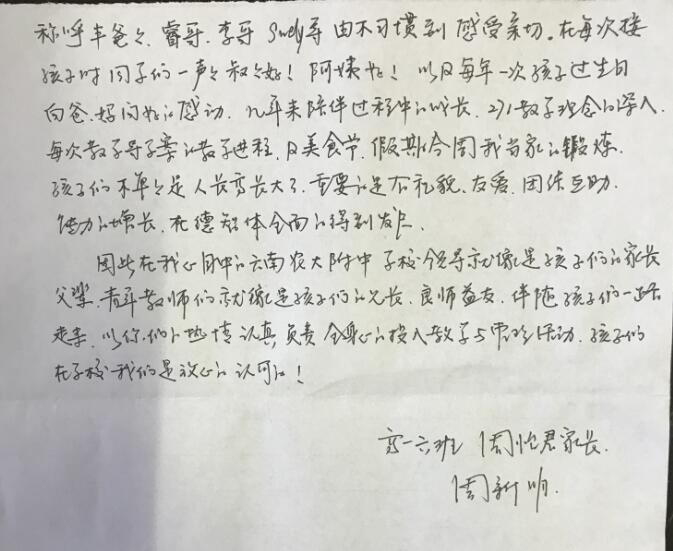 称呼丰爸爸、睿哥、李哥 Sundy等由不习惯到感受亲切。在每次接
孩子时同学们一声声叔叔好！阿姨好！以及每年一次孩子过生日
向爸、妈问好的感动，几年来陪伴过程中的成长，教学理念的深入，
每次教学导学案的教学进程，及美食节，假期今周我当家的锻炼，
孩子们不单单是人长高长大了，重要的是在礼貌、友爱、团结互助、
能力的增长，在德智体全面的得到发展。
因此在我心目中的云南农大附中学校领导就像是孩子们的家长
父辈，青年教师们就像是孩子们的兄长、良师益友，伴随孩子们一路
走来，以你们的热情认真负责全身心的投入教学与带班活动，孩子们
在学校我们是放心的认可的！
高一六班 周怡君家长
周新明